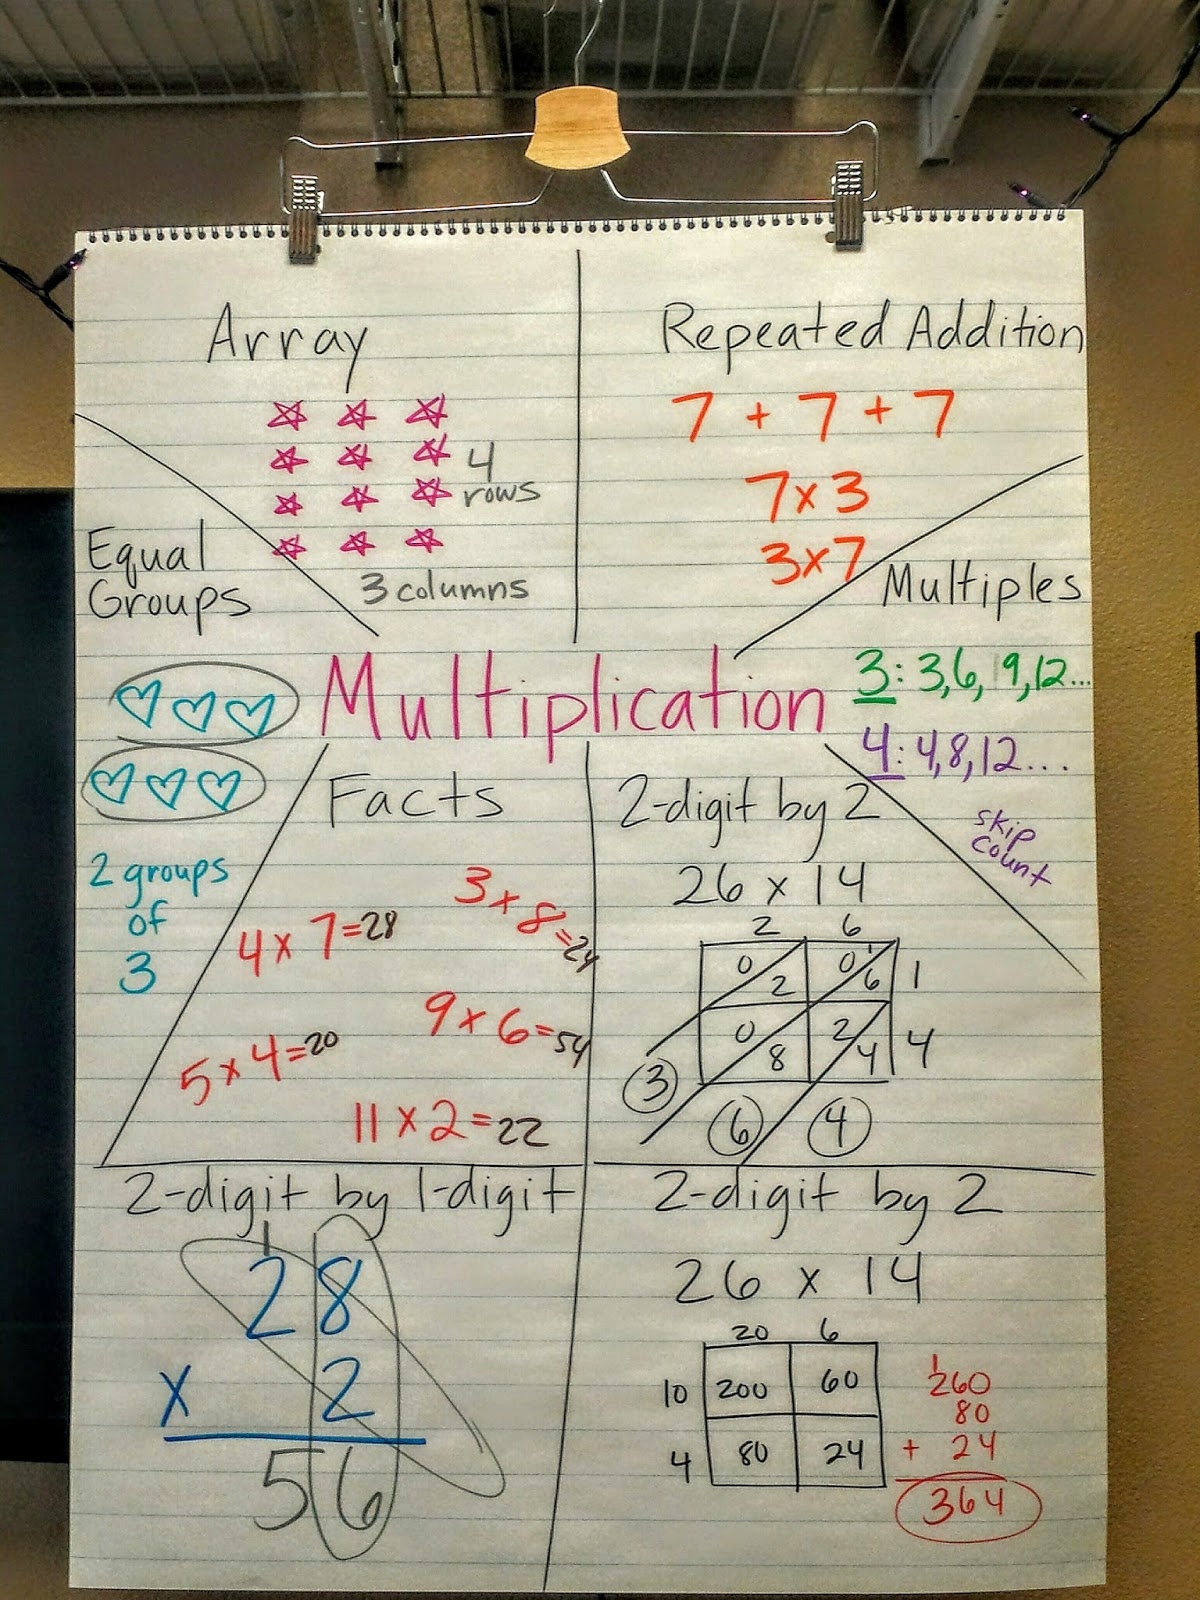 Array
4
rows
3 columns
Repeated Addition
7 + 7 + 7
7 x 3
3 x 7
Equal
Groups
2 groups
of
3
Multiplication
Multiples
3: 3, 6, 9, 12...
4: 4, 8, 12...
skip
count
Facts
4 x 7 = 28
3 x 8 = 24
9 x 6 = 54
5 x 4 = 20
11 x 2 = 22
2-digit by 2
26 x 14
2 6
0 2 0 1 6 1
0 8 2 4 4
3
6 4
2-digit by 1-digit
1
28
x 2
56
2-digit by 2
26 x 14
20 6
10 200 60
4 80 24
1
260
80
+ 24
364